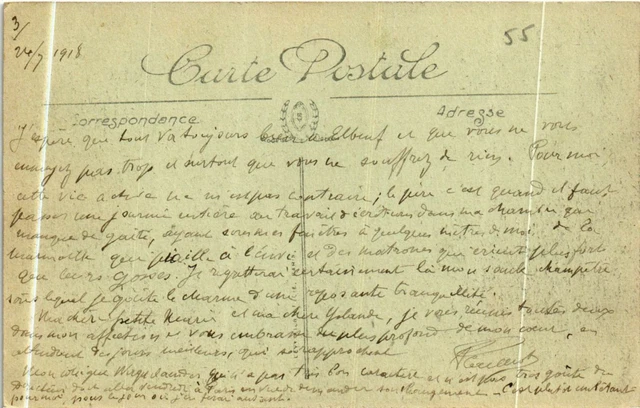 3/
24/7 1918
55
Carte Postale
Correspondance
Adresse
J'espère que tout va toujours bien à Elbeuf et que vous ne vous
ennuyez pas trop et surtout que vous ne souffrez de rien. Pour moi
cette vie active ne m'est pas contraire; le pire c'est quand il faut
passer une journée entière au travail d'écritures dans ma chambre qui
manque de gaîté, ayant sous mes fenêtres à quelques mètres de moi de la
marmaille qui piaille à l'envi et des matrones qui crient plus fort
que leurs gosses. Je regretterai certainement là mon saule champêtre
sous lequel je goûte le charme d'une reposante tranquillité.
Ma chère petite et ma chère Yolande, je vous réunis toutes deux
dans mon affection et vous embrasse du plus profond de mon coeur, en
attendant des jours meilleurs, qui se rapprochent
Mon collègue qui n'a pas très bon caractère et n'est pas très goûté du